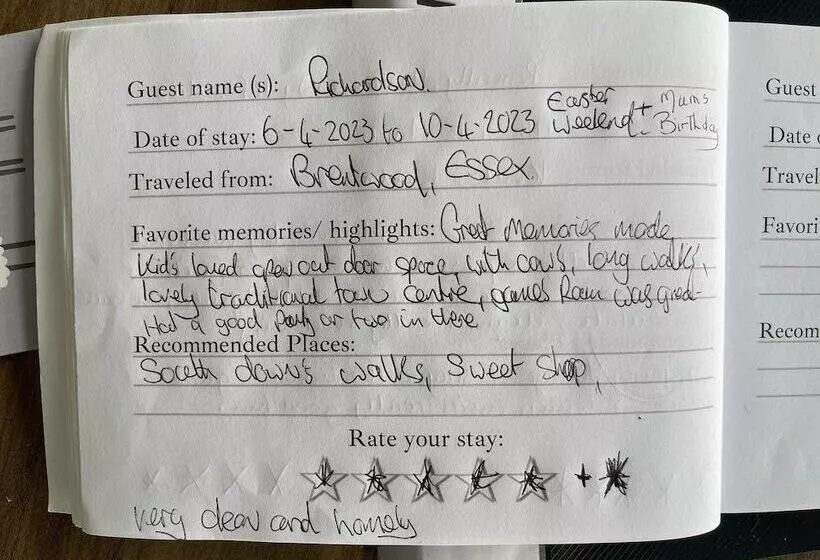 Guest name (s): Richardson.
Date of stay: 6-4-2023 to 10-4-2023 Easter Weelend + Mums Birthday
Traveled from: Brentwood, Essex.
Favorite memories/ highlights: Great Memories made
Kid's loved open out door space, with cows, long walks,
lovely traditional town centre, games Room was great
Had a good Party or two in there
Recommended Places:
South down's walks, Sweet Shop,
Rate your stay:
+
very clean and homely
Guest
Date o
Travel
Favori
Recom